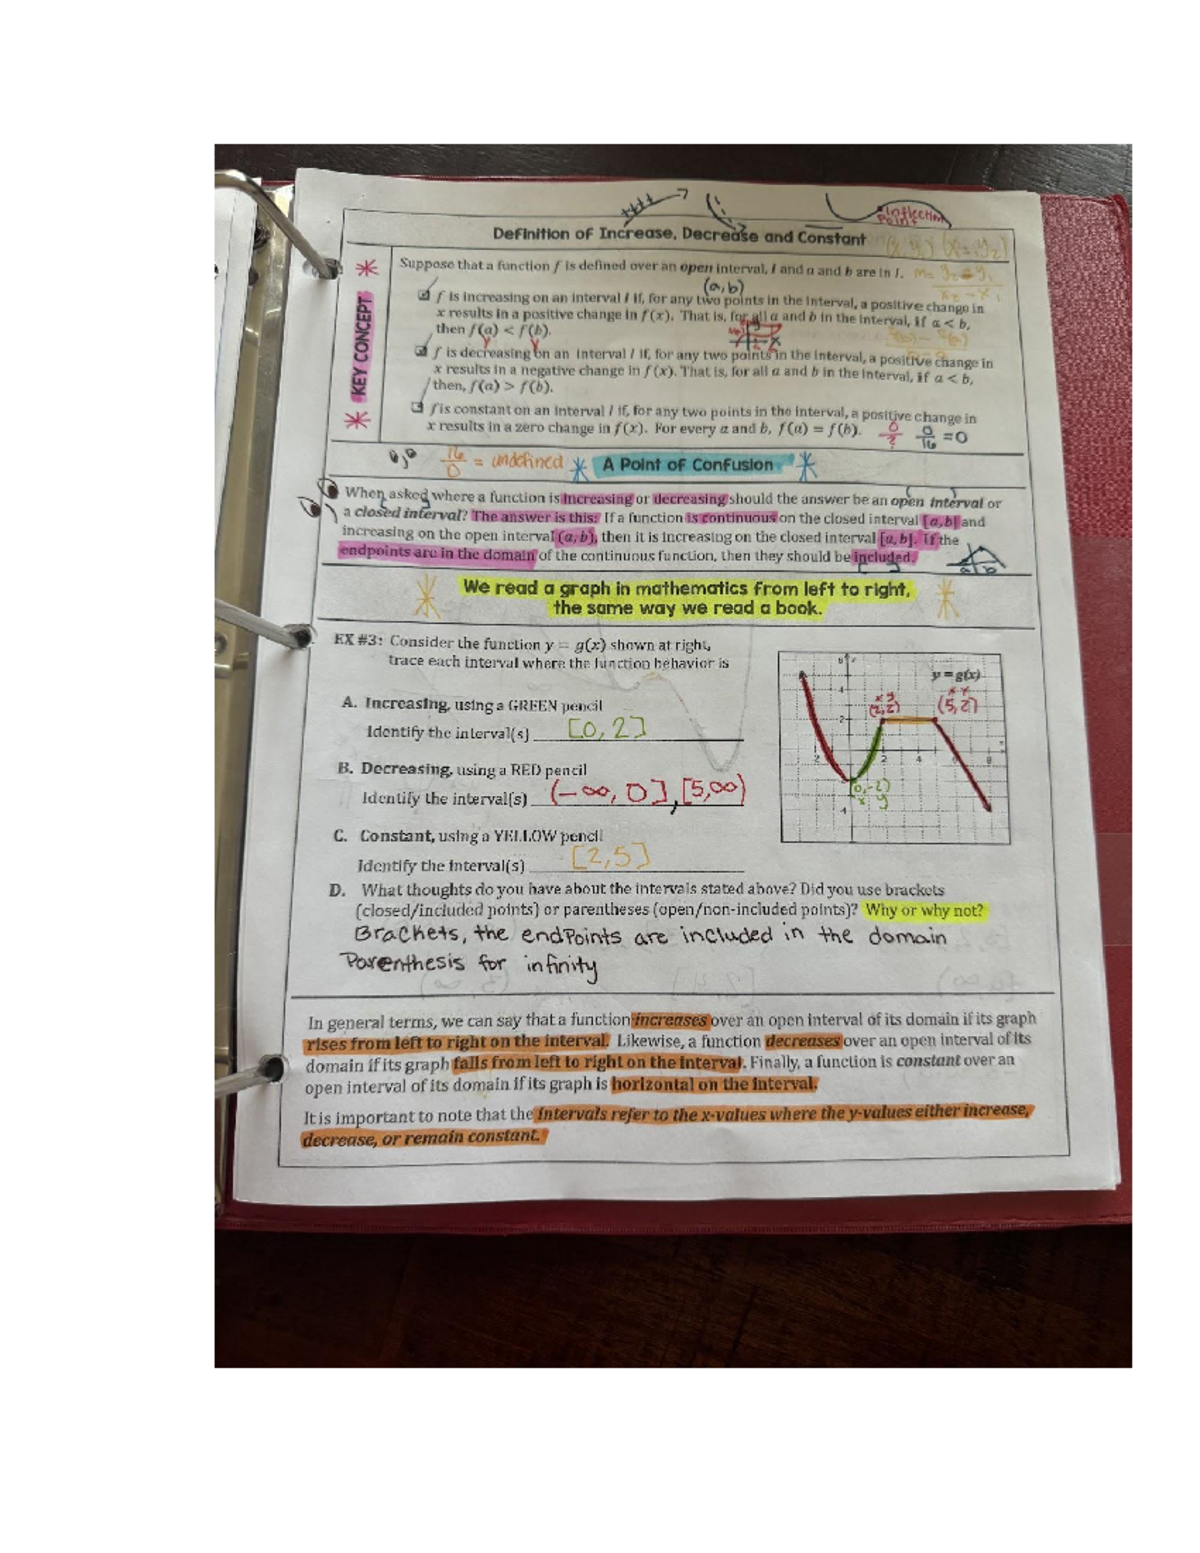 Inflection
Point
Definition of Increase, Decrease and Constant
KEY CONCEPT
Suppose that a function f is defined over an open interval, I and a and b are in I.
(a,b)
f is increasing on an interval I if, for any two points in the interval, a positive change in
x results in a positive change in f(x). That is, for all a and b in the interval, if a < b,
then f(a) < f(b).
f is decreasing on an interval I if, for any two points in the interval, a positive change in
x results in a negative change in f(x). That is, for all a and b in the interval, if a < b,
then, f(a) > f(b).
f is constant on an interval I if, for any two points in the interval, a positive change in
x results in a zero change in f(x). For every a and b, f(a) = f(b). 0/? 0/16 = 0
16/0 = undefined A Point of Confusion
When asked where a function is increasing or decreasing should the answer be an open interval or
a closed interval? The answer is this: If a function is continuous on the closed interval [a, b] and
increasing on the open interval (a, b), then it is increasing on the closed interval [a, b]. If the
endpoints are in the domain of the continuous function, then they should be included.
a b
We read a graph in mathematics from left to right,
the same way we read a book.
EX #3: Consider the function y = g(x) shown at right,
trace each interval where the function behavior is
A. Increasing, using a GREEN pencil
Identify the interval(s) [0, 2]
B. Decreasing, using a RED pencil
Identify the interval(s) (-∞, 0], [5,∞)
C. Constant, using a YELLOW pencil
Identify the interval(s) [2,5]
y = g(x)
x y
(2,2)
x y
(5,2)
(0,-2)
x y
D. What thoughts do you have about the intervals stated above? Did you use brackets
(closed/included points) or parentheses (open/non-included points)? Why or why not?
Brackets, the endpoints are included in the domain
Parenthesis for infinity
In general terms, we can say that a function increases over an open interval of its domain if its graph
rises from left to right on the interval. Likewise, a function decreases over an open interval of its
domain if its graph falls from left to right on the interval. Finally, a function is constant over an
open interval of its domain if its graph is horizontal on the interval.
It is important to note that the intervals refer to the x-values where the y-values either increase,
decrease, or remain constant.